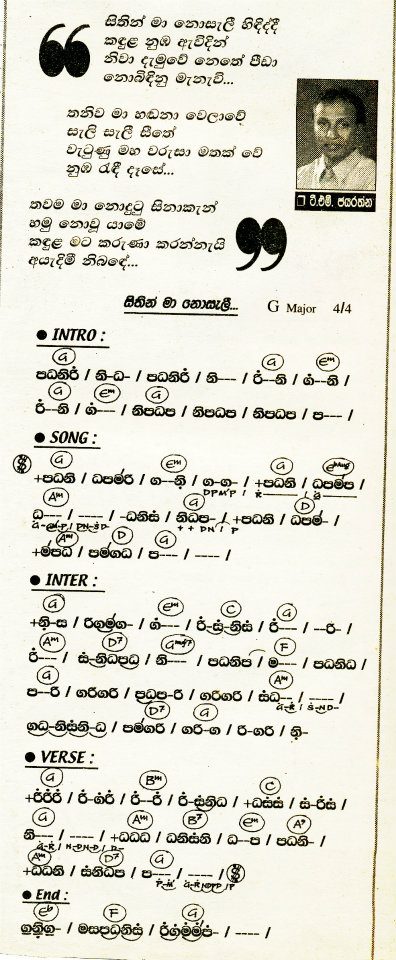 සිතින් මා නොසැලී හිඳිද්දී
කඳුළ නුඹ ඇවිදින්
නිවා දැමුවේ නෙතේ පීඩා
නොබිඳිනු මැනැවි...
තනිව මා හඬනා වෙලාවේ
සැලි සැලී සීතේ
වැටුණු මහ වරුසා මතක් වේ
නුඹ රැඳී දෑසේ...
තවම මා නොදුටු සිනාකැන්
හමු නොවූ යාමේ
කඳුළ මට කරුණා කරන්නැයි
අයැදිමී නිබඳේ...
ටී.එම්. ජයරත්න
සිතින් මා නොසැලී... G Major 4/4
INTRO :
G
පධනිරී / නි-ධ- / පධනිරී / නි--- / රී--නි / ගං--නි /
රී--නි / ගං--- / නිපධප / නිපධප / නිපධප / ප--- /
SONG :
G Em G
+පධනි / ධපමරි / ග---නි / ග-ග- / +පධනි / ධපමප /
Am G D
ධ--- / ---- / -ධනිස් / නිධප- / +පධනි / ධපම- /
Am D G
+මපධ / පමගධ / ප--- / ---- /
INTER :
G Em C G
+නි-ස / රිගමග- / ගං--- / රී-ස්-නිස් / රී--- / --රි- /
Am D7 Gmaj7 F
රී--- / ස්-නිධපධ / නි--- / පධනිප / ම--- / පධනිධ /
G Am
ප--රි / ගරිගරි / පධප-රි / ගරිගරි / ස්ධ-- / ---- /
D7 G
ගධ-නිස්නි-ධ / පමගරි / ගරි-ග / රි-ගරි / නි-
VERSE :
G Bm C
+රීරීරී / රී-ගංරී / රී--රී / රී-ස්නිධ / +ධස්ස් / ස්-රීස් /
G Am B7 Em A7
නි--- / ---- / +ධධධ / ධනිස්නි / ධ--ප / පධනි- /
Am D7 G
+ධධනි / ස්නිධප / ප--- / ---- /
End :
Eb F G
ගනිග- / මසපධනිස් / රීගංමංපං- / ---- /